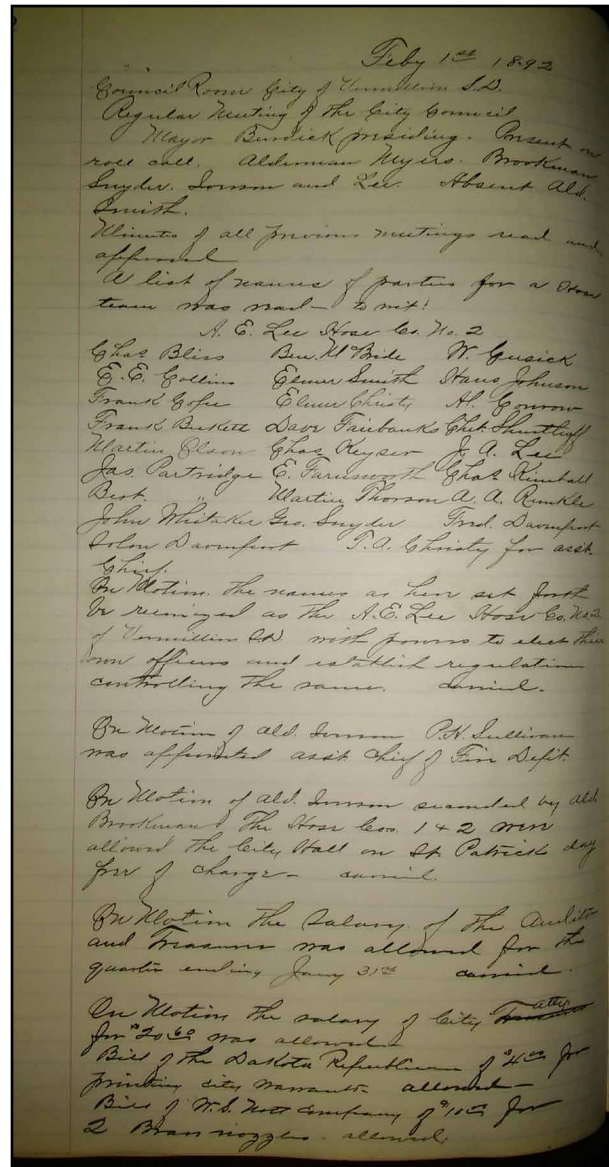 Feby 1st 1892
Council Room City of Vermillion S.D.
Regular Meeting of the City Council
Mayor Burdick presiding. Present on
roll call. Alderman Myers. Brookman
Snyder. Inman and Lee. Absent Ald.
Smith.
Minutes of all previous meetings read and
approved
A list of names of parties for a Hose
team was read - to wit!
A. E. Lee Hose Co. No. 2
Chas Bliss Ben. McBride W. Cusick
E. E. Collins Elmer Smith Hans Johnson
Frank Elmer Christy Al. Conrow
Frank Dave Fairbanks Chet. Shurtleff
Martin Olson Chas Keyser J. A. Lee
Jas. Partridge E. Farnsworth Chas Kimball
Bert. " Martin Thorson A. A. Runkle
John Whitaker Geo. Snyder Fred. Davenport
Solon Davenport T. A. Christy for asst.
Chief.
On Motion. the names as here set forth
be recognized as the A. E. Lee Hose Co. No 2
of Vermillion S.D. with powers to elect their
own officers and establish regulation
controlling the same. carried.
On Motion of ald. Inman P. H. Sullivan
was appointed asst chief of Fire Dept.
On Motion of ald. Inman seconded by Ald
Brookman The Hose Cos. 1 & 2 were
allowed the City Hall on St Patrick day
free of charge - carried.
On Motion the Salary of the Auditor
and Treasurer was allowed for the
quarter ending Jany 31st carried.
On Motion the salary of City atty
for $20.60 was allowed -
Bill of the Dakota Republican of $4.00 for
printing city warrants allowed -
Bill of W. S. Nott Company of for
2 Brass nozzles. allowed.